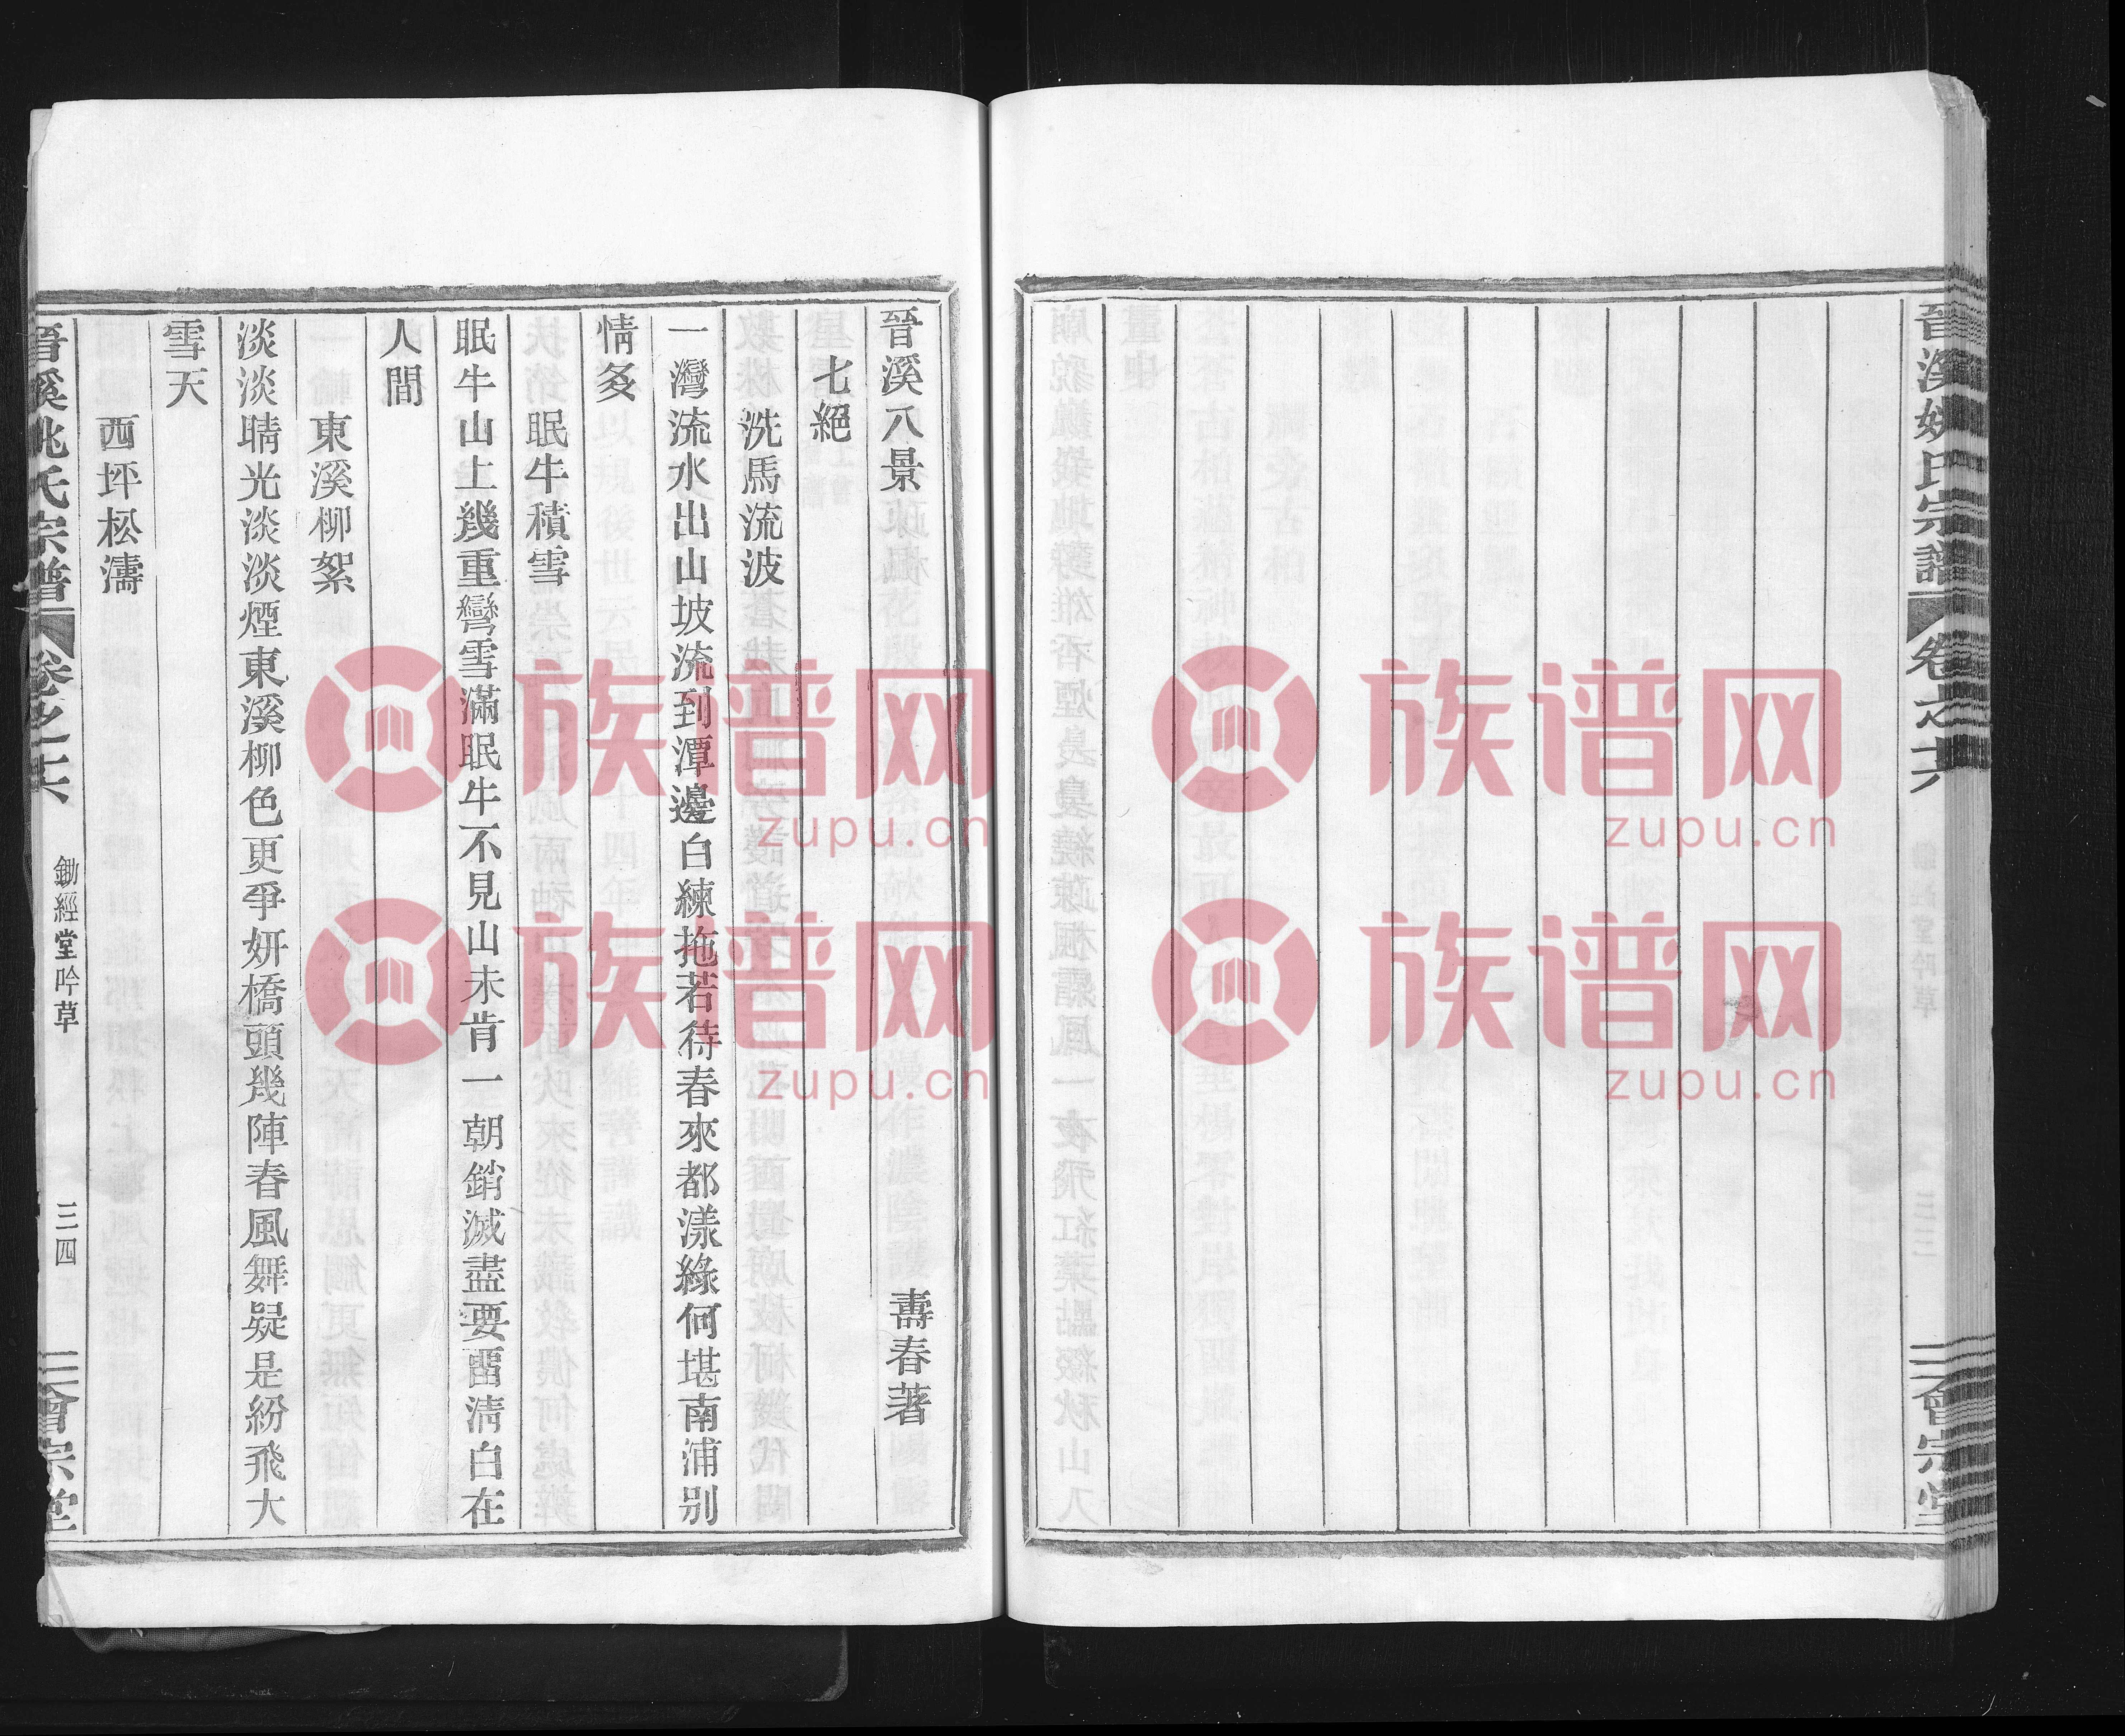 晉溪姚氏宗譜
卷之十六
三會宗堂
晉溪八景
壽春著
七絕
洗馬流波
一灣流水出山坡流到潭邊白練拖若待春來都漾綠何堪南浦別
情多
眠牛積雪
眠牛山上幾重彎雪滿眠牛不見山未肯一朝銷滅盡要畱淸白在
人間
東溪柳絮
淡淡晴光淡淡煙東溪柳色更爭妍橋頭幾陣春風舞疑是紛飛大
雪天
西坪松濤
晉溪姚氏宗譜
卷之十六
鋤經堂吟草
三四
三會宗堂
族谱网
zupu.cn
族谱网
zupu.cn
族谱网
zupu.cn
族谱网
zupu.cn